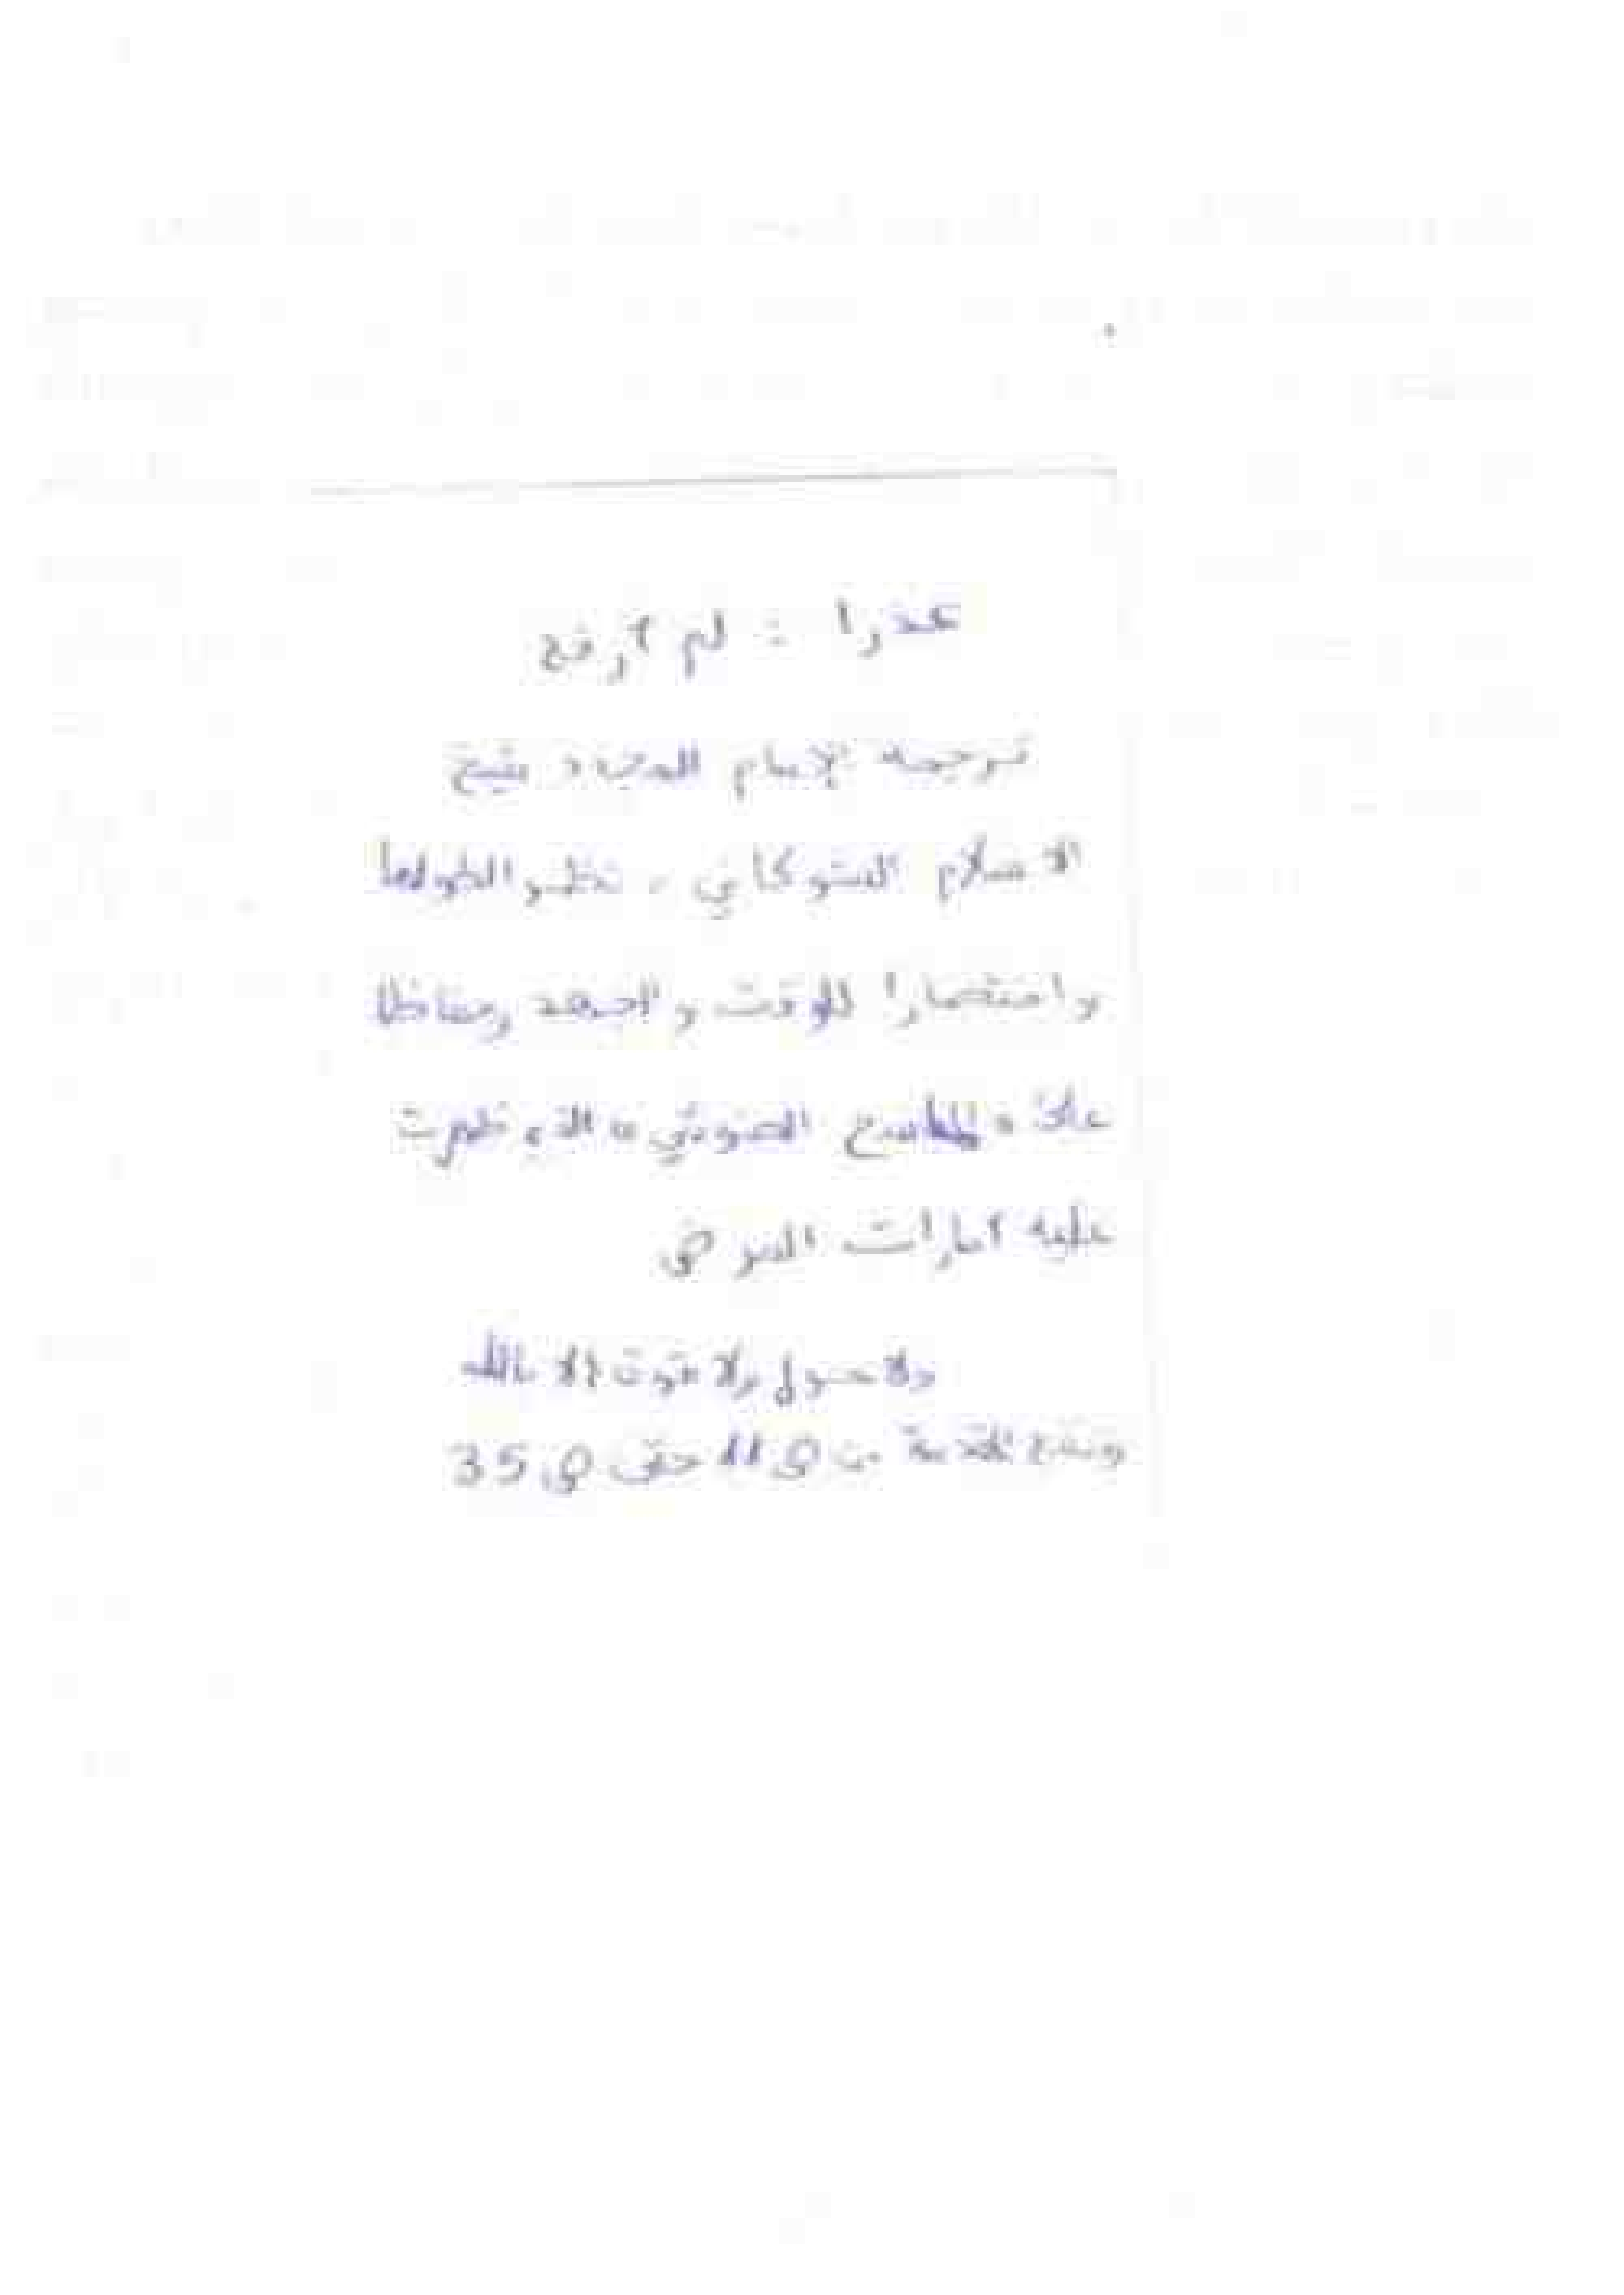 عذرا : لم أرفع
ترجمة الإمام المجدد شيخ
الاسلام الشوكاني ، نظرا لطولها
واختصارا للوقت والجهد وحفاظا
على " الماسح الضوئي " الذي ظهرت
عليه أمارات المرض
ولا حول ولا قوت إلا بالله
وتقع الترجمة من ص 11 حتى ص 35